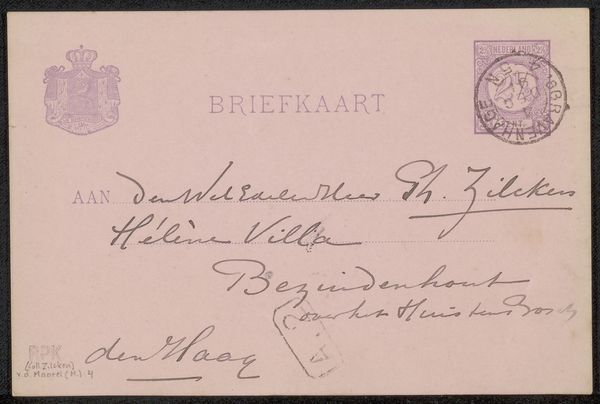 NEDERLAND
BRIEFKAART
'S GRAVENHAGE
AAN den WelEdelen Heer Ph. Zilcken
Hélène Villa
Bezuidenhout
over het Huis ten Bosch
den Haag
PPK
(Coll Zilcken)
v.d. Maarel (M.) 4